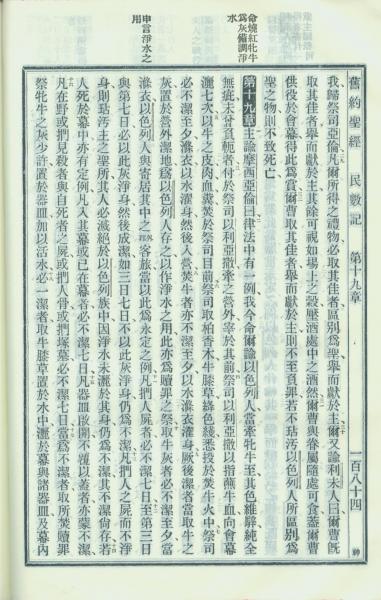 舊約聖經 民數記 第十九章 一百八十四
我歸祭司亞倫凡爾所得之禮物必取其佳者區別爲聖舉而獻於主爾又諭利未人曰爾曹旣
取其佳者舉而獻於主其餘可視如場上之穀壓酒處中之酒然爾曹與眷屬隨處可食蓋爾曹
供役於會幕得此爲賞爾曹取其佳者舉而獻於主則不至負罪若不玷汚以色列人所區別爲
聖之物則不致死亡
命燒紅牝牛
爲灰備調淨
水
第十九章 主諭摩西亞倫曰律法中有一例我今命爾諭以色列人當牽牝牛至其色維騂純全
無疵未曾負軛者付於祭司以利亞撒牽之營外宰於其前祭司以利亞撒以指蘸牛血向會幕
灑七次以牛之皮肉血糞焚於祭司目前祭司取柏香木牛膝草絳色綫悉投於焚牛火中祭司
必不潔至夕滌衣以水濯身然後入營焚牛者亦不潔至夕以水滌衣濯身厥後潔者當取牛之
灰置於營外潔地爲以色列人存之以作淨水之用此亦爲贖罪之祭取牛灰者必不潔至夕當
申言淨水之
用
滌衣以色列人與寄居其中之客旅當以此爲永定之例凡捫人屍者必不潔七日至第三日
與第七日必以此灰淨身然後成潔如三日七日不以此灰淨身仍爲不潔凡捫人之屍而不淨
身則玷汚主之聖所其人必滅絕於以色列族中因淨水未灑於其身仍爲不潔其不潔尙存若
人死於幕中亦有定例凡入其幕或已在幕者必不潔七日凡器皿敞開不覆以蓋者亦蒙不潔
凡在野或捫見殺者與自死者之屍或捫人骨或捫塚墓必不潔七日當爲不潔者取所焚贖罪
祭牝牛之灰少許置於器皿加以活水必一潔者取牛膝草置於水中灑於幕與諸器皿及幕內